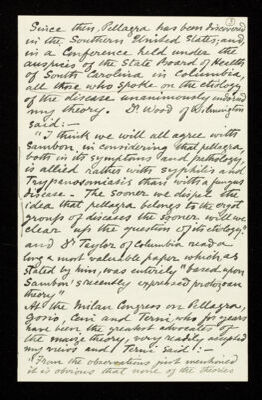 3
Since then, Pellagra has been discovered
in the Southern United States; and,
in a Conference held under the
auspices of the State Board of Health
of South Carolina in Columbia,
all those who spoke on the etiology
of the disease unanimously endorsed
my theory. Dr. Wood of Wilmington
said:—
"I think we will all agree with
Sambon, in considering that pellagra,
both in its symptoms and pathology,
is allied rather with syphilis and
Trypanosomiasis than with a fungus
disease. The sooner we dispel the
idea that pellagra belongs to the ergot
group of diseases the sooner will we
clear up the question of its etiology."
and Dr Taylor of Columbia read a
long & most valuable paper which, as
stated by him, was entirely "based upon
Sambon's recently expressed protozoan
theory"
At the Milan Congress on Pellagra,
Gosio, Ceni and Terni, who for years
have been the greatest advocates of
the maize theory, very readily accepted
my views, and Terni said:—
"From the observations just mentioned
it is obvious that none of the theories